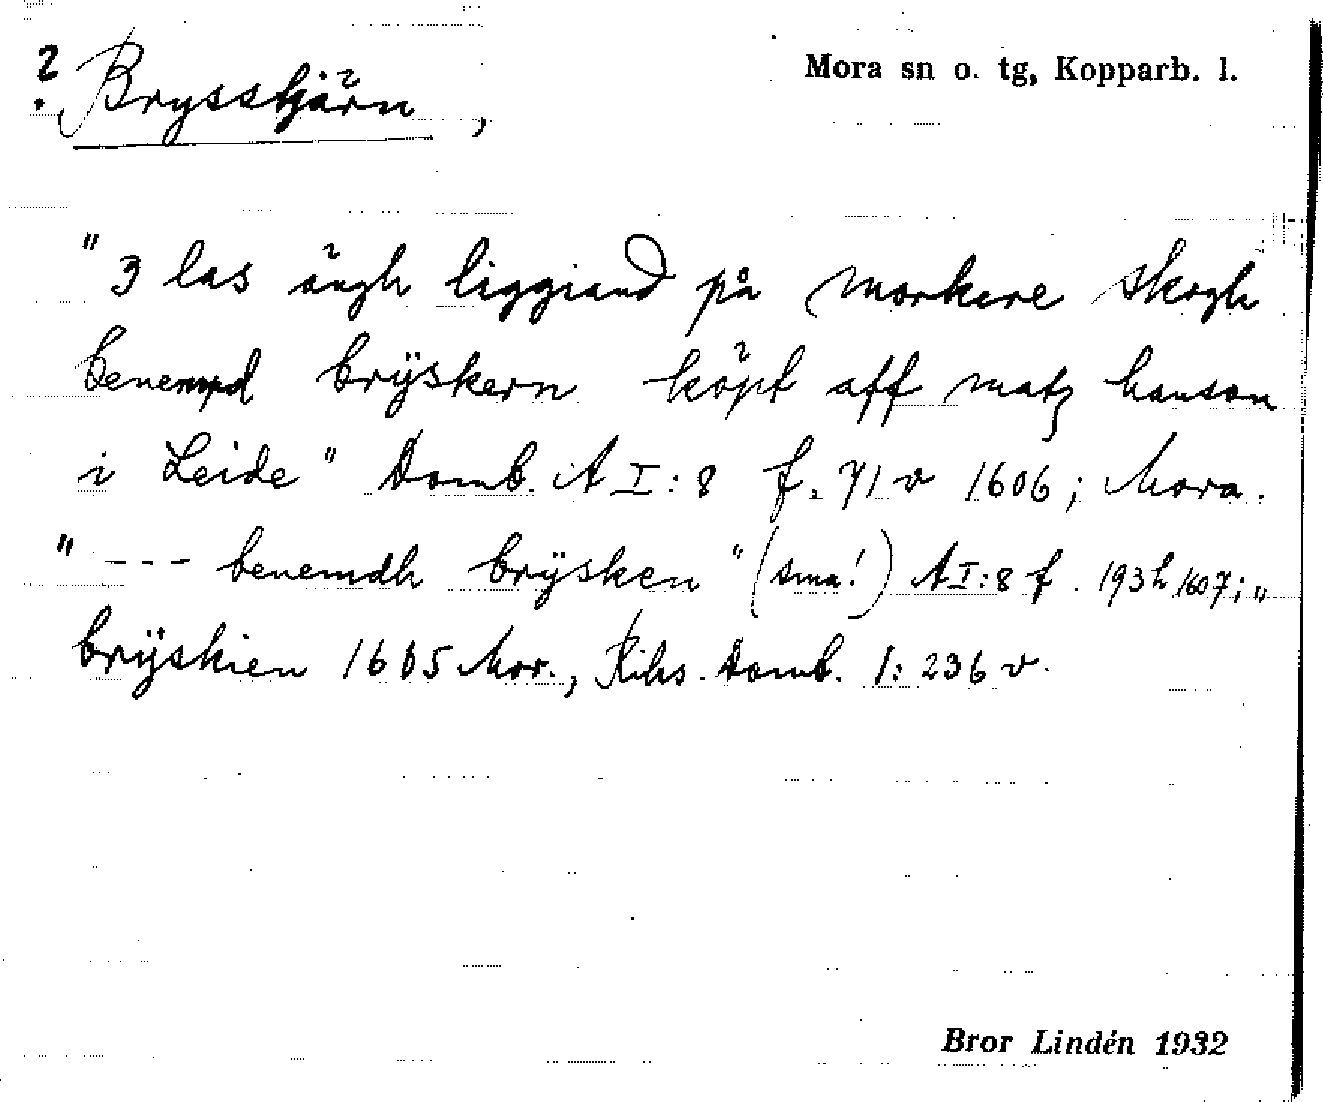 ? Brysstjärn,
Mora sn o. tg, Kopparb. l.
"3 las ängh liggiand på morkere skogh
benempd brÿskern köpt aff matz hanson
i Leide" Domb. A I:8 f. 71 v 1606; Mora.
" - - - benemdh brÿsken" (sma!) A I:8 f. 193 h 1607; "
brÿskien 1605 Mor., Riks. Domb. 1: 236 v.
Bror Lindén 1932